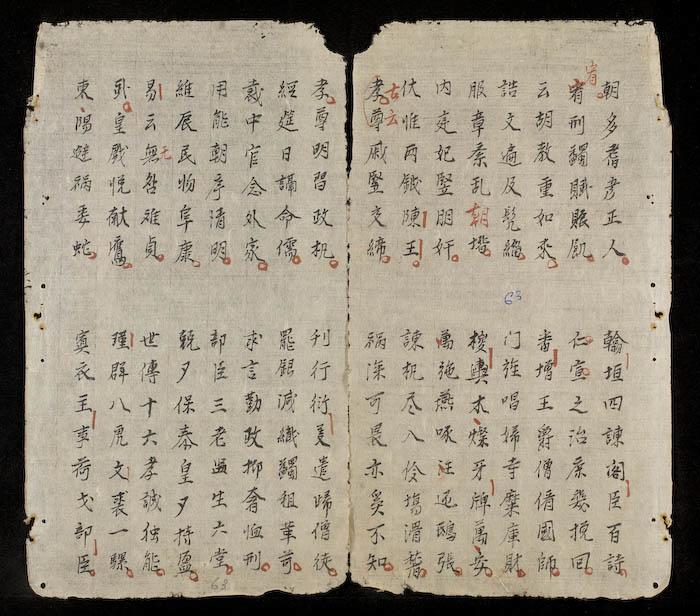 朝多耆彥正人
翰垣四諫閣臣百詩
宥
宥刑蠲賦賑飢
仁宣之治庶幾挽回
云胡教重如來
番增王爵僧偕國師
誥文遍及髡緇
门旌唱婦寺糜庫財
服章紊乱朝堦
輿木燦牙牌萬安
内定妃豎朋奸
萬施燕啄汪迤鴟張
伏惟两鉞陳王
諫机尽入伶塲滑稽
孝尊戚豎交締
禍深可畏亦奚不知
63
孝尊明習政机
刊行衍義遣歸僧徒
經筵日講命儒
罷銀减織蠲租革苛
中官念外家
求言勤政抑奢恤刑
用能朝序清明
部臣三老监生六堂
維辰民物阜康
兢夕保泰皇夕持盈
易云無咎雖貞
世傳十六孝誠独能
武皇戲悅献鷹
瑾群八虎文裘一騾
東陽避禍委蛇
寘衣王事荷戈部臣
63